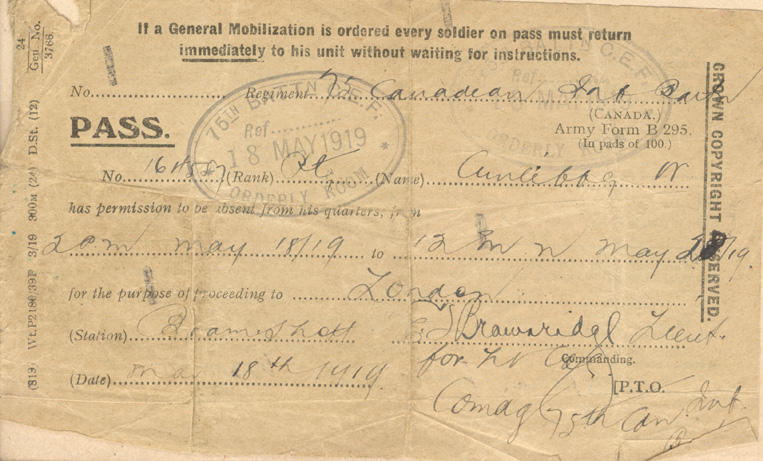 If a General Mobilization is ordered every soldier on pass must return
immediately to his unit without waiting for instructions.
24
Gen. No.
3768.
No. Regiment 75 Canadian Inf Battn
(CANADA.)
PASS.
Army Form B 295.
(In pads of 100.)
75TH BATTN C.E.F.
Ref
18 MAY 1919
ORDERLY ROOM
C.E.F.
Ref
ORDERLY
No. (Rank) Pte (Name) W
has permission to be absent from his quarters, from
2 pm may 18/19 to 12 m n may /19.
for the purpose of proceeding to London
(Station) Bramshott Lieut.
for Lt Col
Commanding.
(Date) 18th 1919
[P.T.O.
Comdg 75th Can. Inf.
CROWN COPYRIGHT RESERVED.
(819) Wt.P2180/39P 3/19 900M (24) D.St. (12)